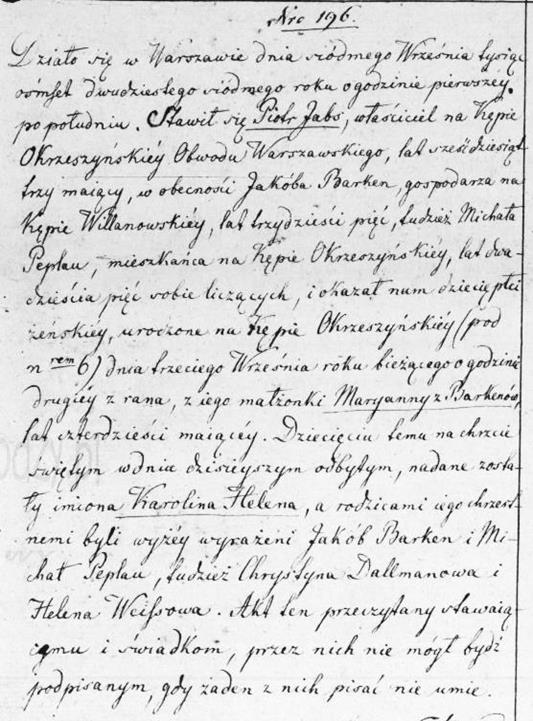 Nro 196.
Działo się w Warszawie dnia siódmego Września tysiąc
ośmset dwudziestego siódmego roku o godzinie pierwszéy.
po południu. Stawił się Piotr Jabs, właściciel na Kępie
Okrzeszyńskiéy Obwodu Warszawskiego, lat sześćdziesiąt
trzy maiący, w obecności Jakóba Barken, gospodarza na
Kępie Willanowskiéy, lat trzydzieści pięć, tudzież Michała
Peplau, mieszkańca na Kępie Okrzeszyńskiéy, lat dwa-
dzieścia pięć sobie liczących, i okazał nam dziecię płci
żeńskiéy, urodzone na Kępie Okrzeszyńskiéy (pod
nrem 6) dnia trzeciego Września roku bieżącego o godzinie
drugiéy z rana, z iego małżonki Maryanny z Barkenów,
lat czterdzieści maiącéy. Dziecięciu temu na chrzcie
świętym w dniu dzisieyszym odbytym, nadane zosta-
ły imiona Karolina Helena, a rodzicami iego chrzest-
nemi byli wyżéy wyrażeni Jakób Barken i Mi-
chał Peplau, tudzież Chrystyna Dallmanowa i
Helena Weissowa. Akt ten przeczytany stawaią-
cemu i świadkom, przez nich nie mógł bydź
podpisanym, gdy żaden z nich pisać nie umie.